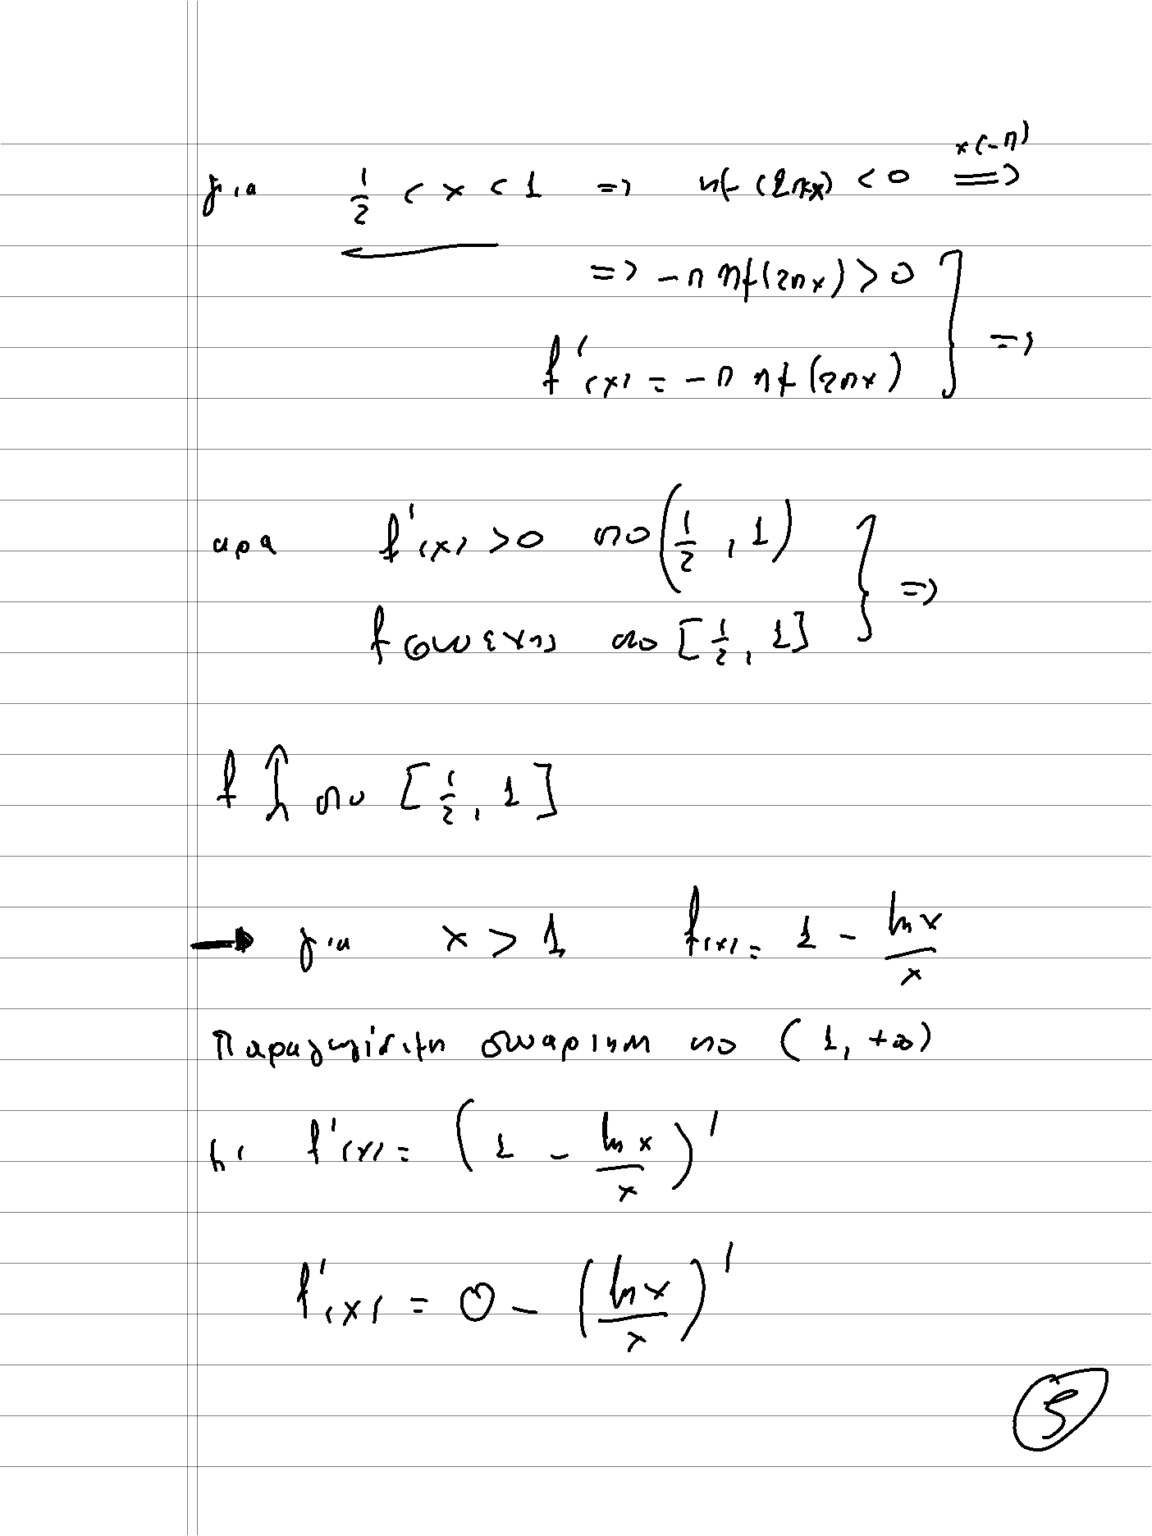 για 1/2 < x < 1 => ημ(2πx) < 0 ×(-π) =>
=> -π ημ(2πx) > 0
f'(x) = -π ημ(2πx) } =>
αρα f'(x) > 0 στο (1/2, 1)
f συνεχης στο [1/2, 1] } =>
f ↑ στο [1/2, 1]
→ για x > 1 f(x) = 1 - lnx/x
Παραγωγίσιμη συνάρτηση στο (1, +∞)
με f'(x) = (1 - lnx/x)'
f'(x) = 0 - (lnx/x)'
5